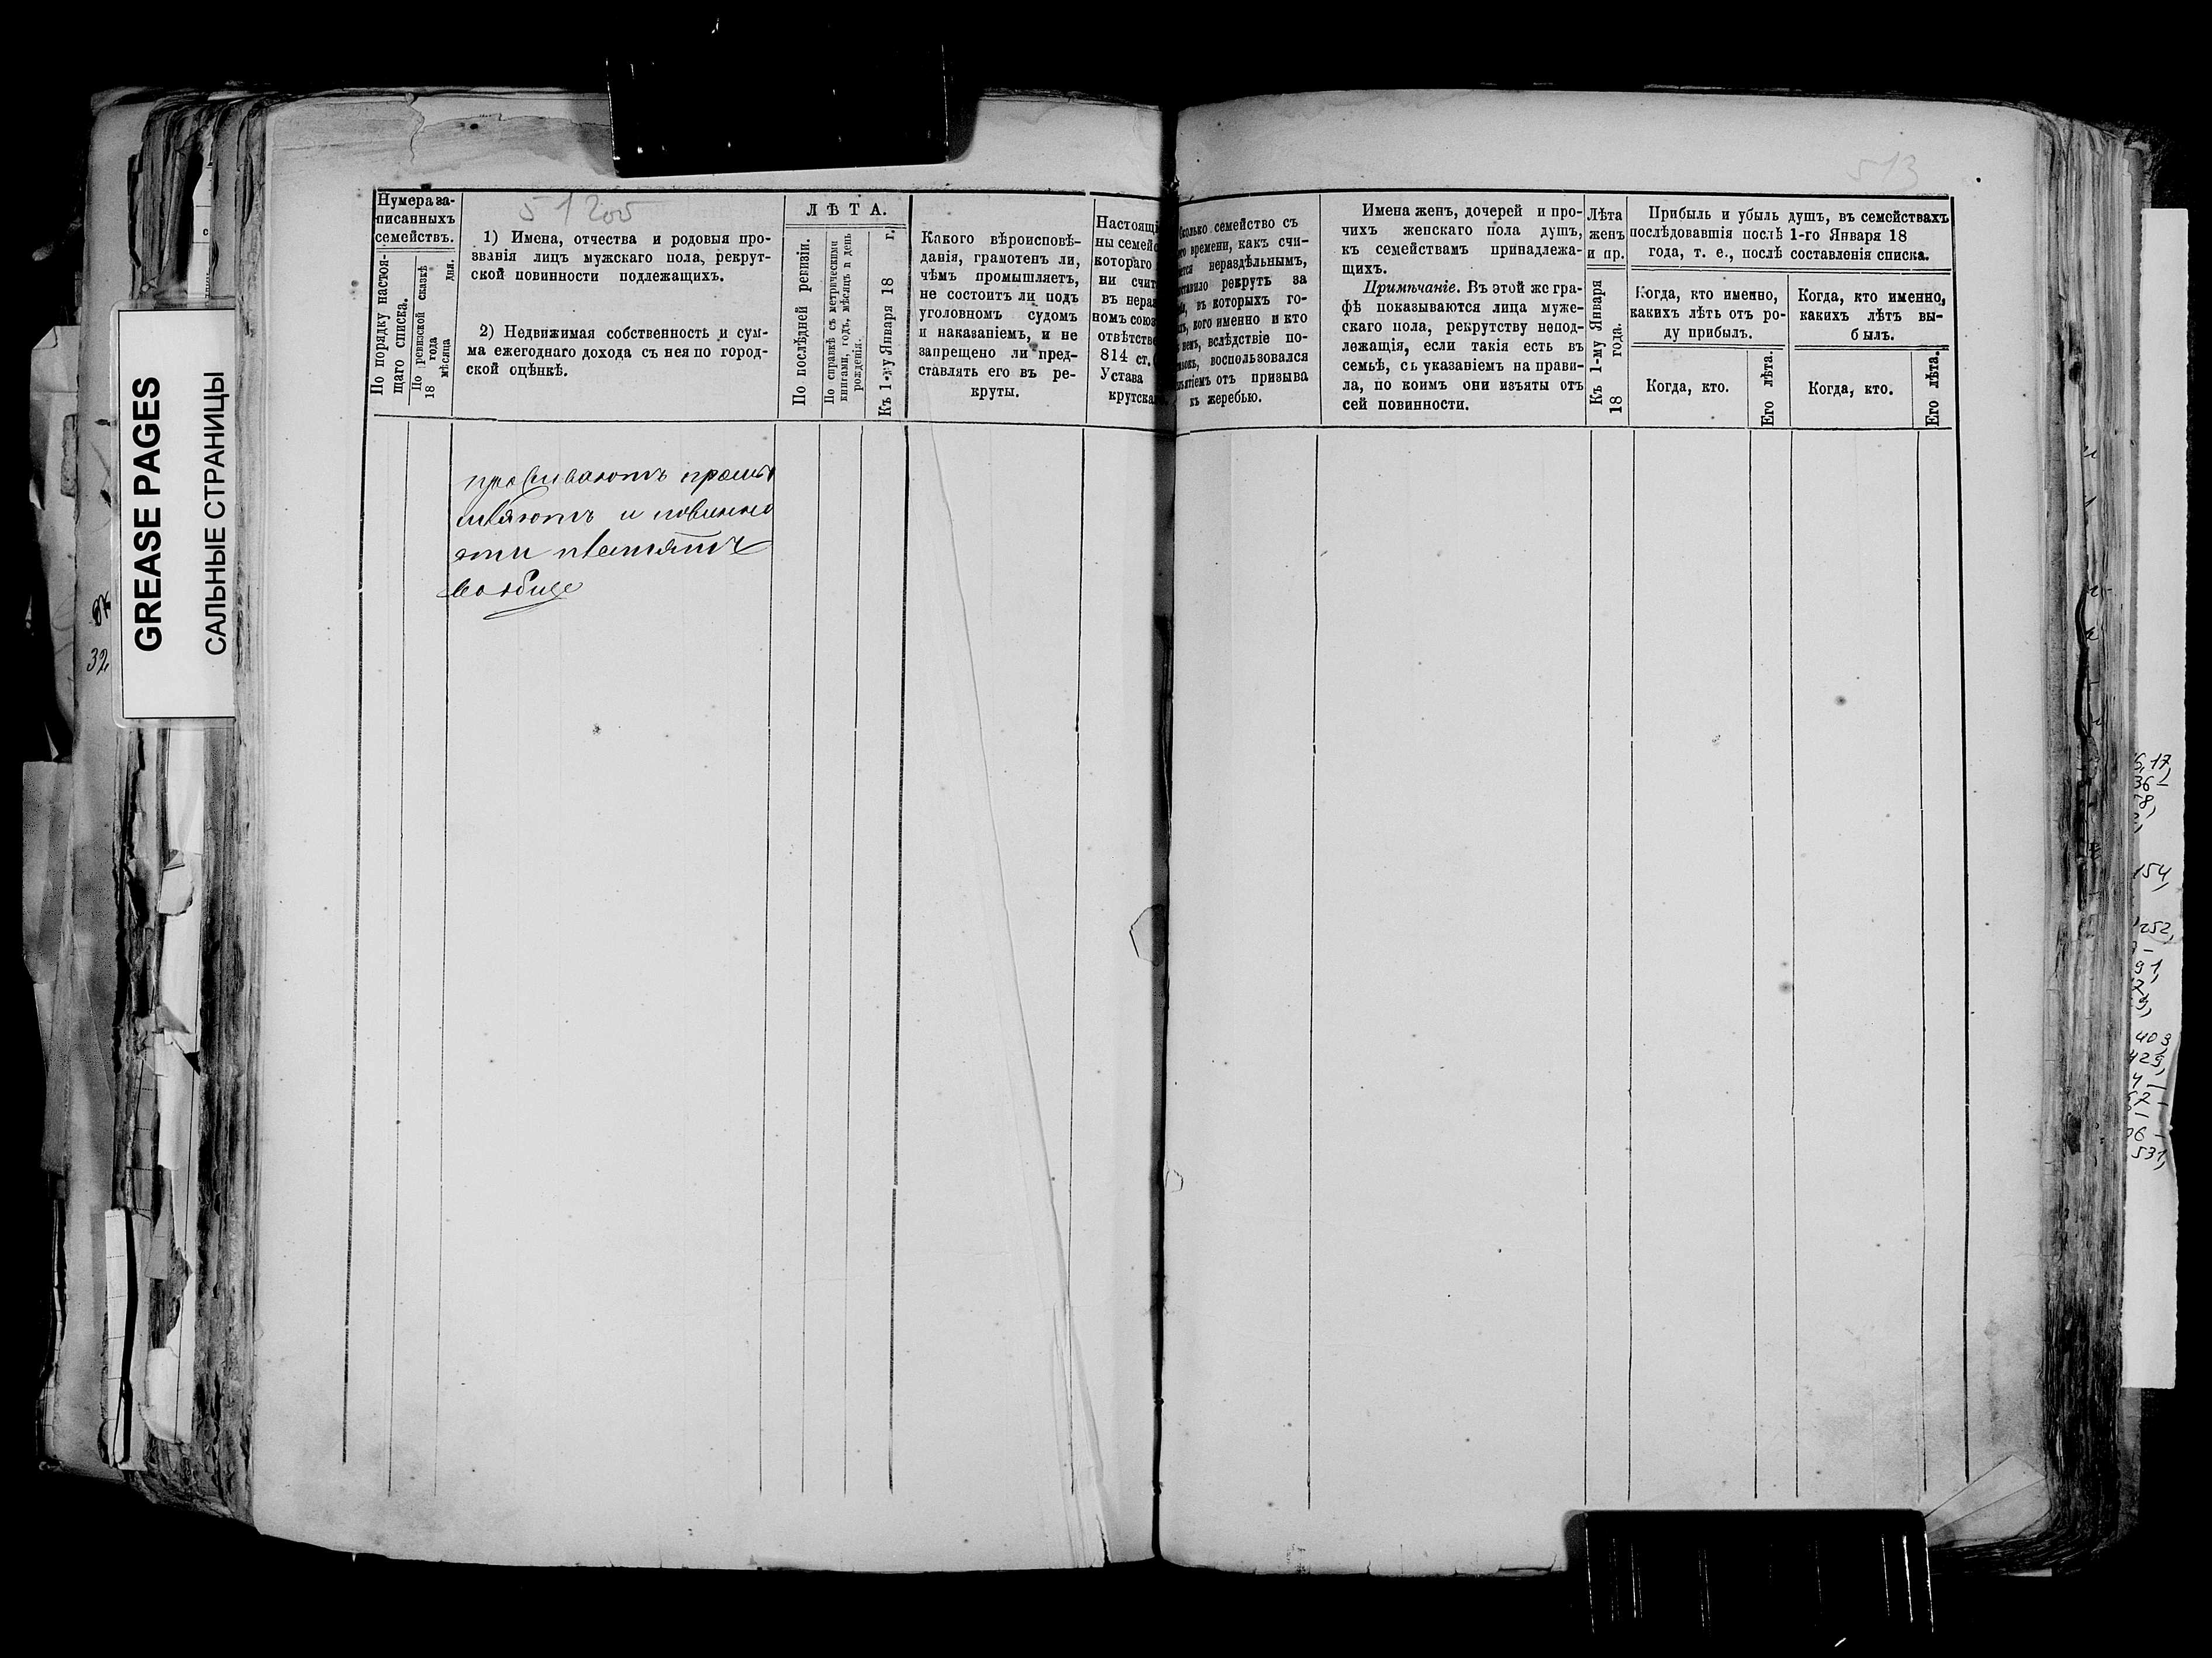 GREASE PAGES
САЛЬНЫЕ СТРАНИЦЫ
32
Нумера за-
писанныхъ
семействъ.
По порядку настоя-
щаго списка.
По ревизской сказкѣ
18 года
мѣсяца дня.
1) Имена, отчества и родовыя про-
званія лицъ мужскаго пола, рекрут-
ской повинности подлежащихъ.
2) Недвижимая собственность и сум-
ма ежегоднаго дохода съ нея по город-
ской оцѣнкѣ.
ЛѢТА.
По послѣдней ревизіи.
По справкѣ съ метрическими
книгами, годъ, мѣсяцъ и день
рожденія.
Къ 1-му Января 18 г.
Какого вѣроисповѣ-
данія, грамотенъ ли,
чѣмъ промышляетъ,
не состоитъ ли подъ
уголовномъ судомъ
и наказаніемъ, и не
запрещено ли пред-
ставлять его въ ре-
круты.
Настоящі
ны семейс
котораго
ни счит
въ нераз
номъ союз
отвѣтстве
814 ст.
Устава
крутска
проживаютъ промы
шляютъ и повинно
сти платятъ
вообще
513
семейство съ
времени, какъ счи-
нераздѣльнымъ,
рекрутъ за
въ которыхъ го-
кого именно и кто
вслѣдствіе по-
воспользовался
отъ призыва
къ жеребью.
Имена женъ, дочерей и про-
чихъ женскаго пола душъ,
къ семействамъ принадлежа-
щихъ.
Примѣчаніе. Въ этой же гра-
фѣ показываются лица муже-
скаго пола, рекрутству непод-
лежащія, если такія есть въ
семьѣ, съ указаніемъ на прави-
ла, по коимъ они изъяты отъ
сей повинности.
Лѣта
женъ
и пр.
Къ 1-му Января
18 года.
Прибыль и убыль душъ, въ семействахъ
послѣдовавшія послѣ 1-го Января 18
года, т. е., послѣ составленія списка.
Когда, кто именно,
какихъ лѣтъ отъ ро-
ду прибылъ.
Когда, кто именно,
какихъ лѣтъ вы-
былъ.
Когда, кто.
Его лѣта.
Когда, кто.
Его лѣта.
154,
252,
91,
403
429,
531,